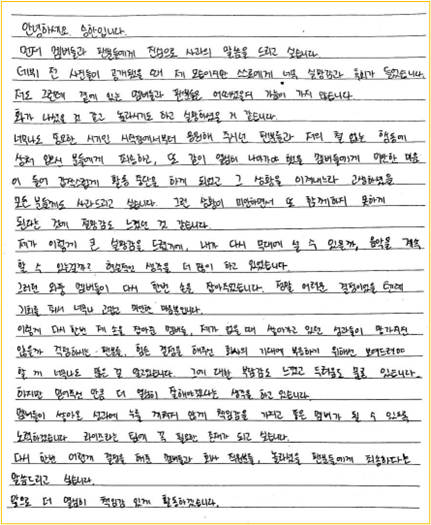 안녕하세요 승한입니다.
먼저 멤버들과 팬분들에게 진심으로 사과의 말씀을 드리고 싶습니다.
데뷔 전 사진들이 공개됐을 때 제 모습이지만 스스로에게 너무 실망감과 후회가 들었습니다.
저도 그런데 곁에 있는 멤버들과 팬분들은 어떠셨을지 가늠이 가지 않습니다.
화가 나셨을 것 같고 놀라시기도 하고 실망하셨을 거 같습니다.
너무나도 중요한 시기인 시작점에서부터 응원해 주시던 팬분들과 저의 철 없는 행동에
상처 받으신 분들에게 죄송하고, 또 같이 열심히 나아가야 했을 멤버들에게 미안한 마음
이 들어 갑작스럽게 활동 중단을 하게 되었고 그 상황을 이겨내느라 고생하셨을
모든 분들께도 사과드리고 싶습니다. 그런 상황이 미안하면서 또 함께하지 못하게
된다는 것에 절망감도 느꼈던 것 같습니다.
제가 이렇게 큰 실망감을 드렸기에, 내가 다시 무대에 설 수 있을까, 음악을 계속
할 수 있는걸까? 현실적인 생각을 더 많이 하고 있었습니다.
그러던 와중 멤버들이 다시 한번 손을 잡아주었습니다. 정말 어려운 결정이었을 텐데
기회를 줘서 너무나 고맙고 미안한 마음뿐입니다.
이렇게 다시 한번 제 손을 잡아준 멤버들, 제가 없을 때 쌓아가고 있던 성과들이 망가지진
않을까 걱정하시는 팬분들, 힘든 결정을 해주신 회사의 기대에 부응하기 위해선 보여드려야
할 게 너무나 많은 걸 알고있습니다. 그에 대한 부담감도 느꼈고 두려움도 물론 있습니다.
하지만 믿어주신 만큼 더 열심히 잘해야겠다는 생각을 하고 있습니다.
멤버들이 쌓아온 성과에 누를 끼치지 않게 책임감을 가지고 좋은 멤버가 될 수 있게
노력하겠습니다 라이즈라는 팀에 꼭 필요한 존재가 되고 싶습니다.
다시 한번 어렵게 결정을 해준 멤버들과 회사 직원분들, 놀라셨을 팬분들에게 죄송하다는
말씀드리고 싶습니다.
앞으로 더 열심히 책임감 있게 활동하겠습니다.